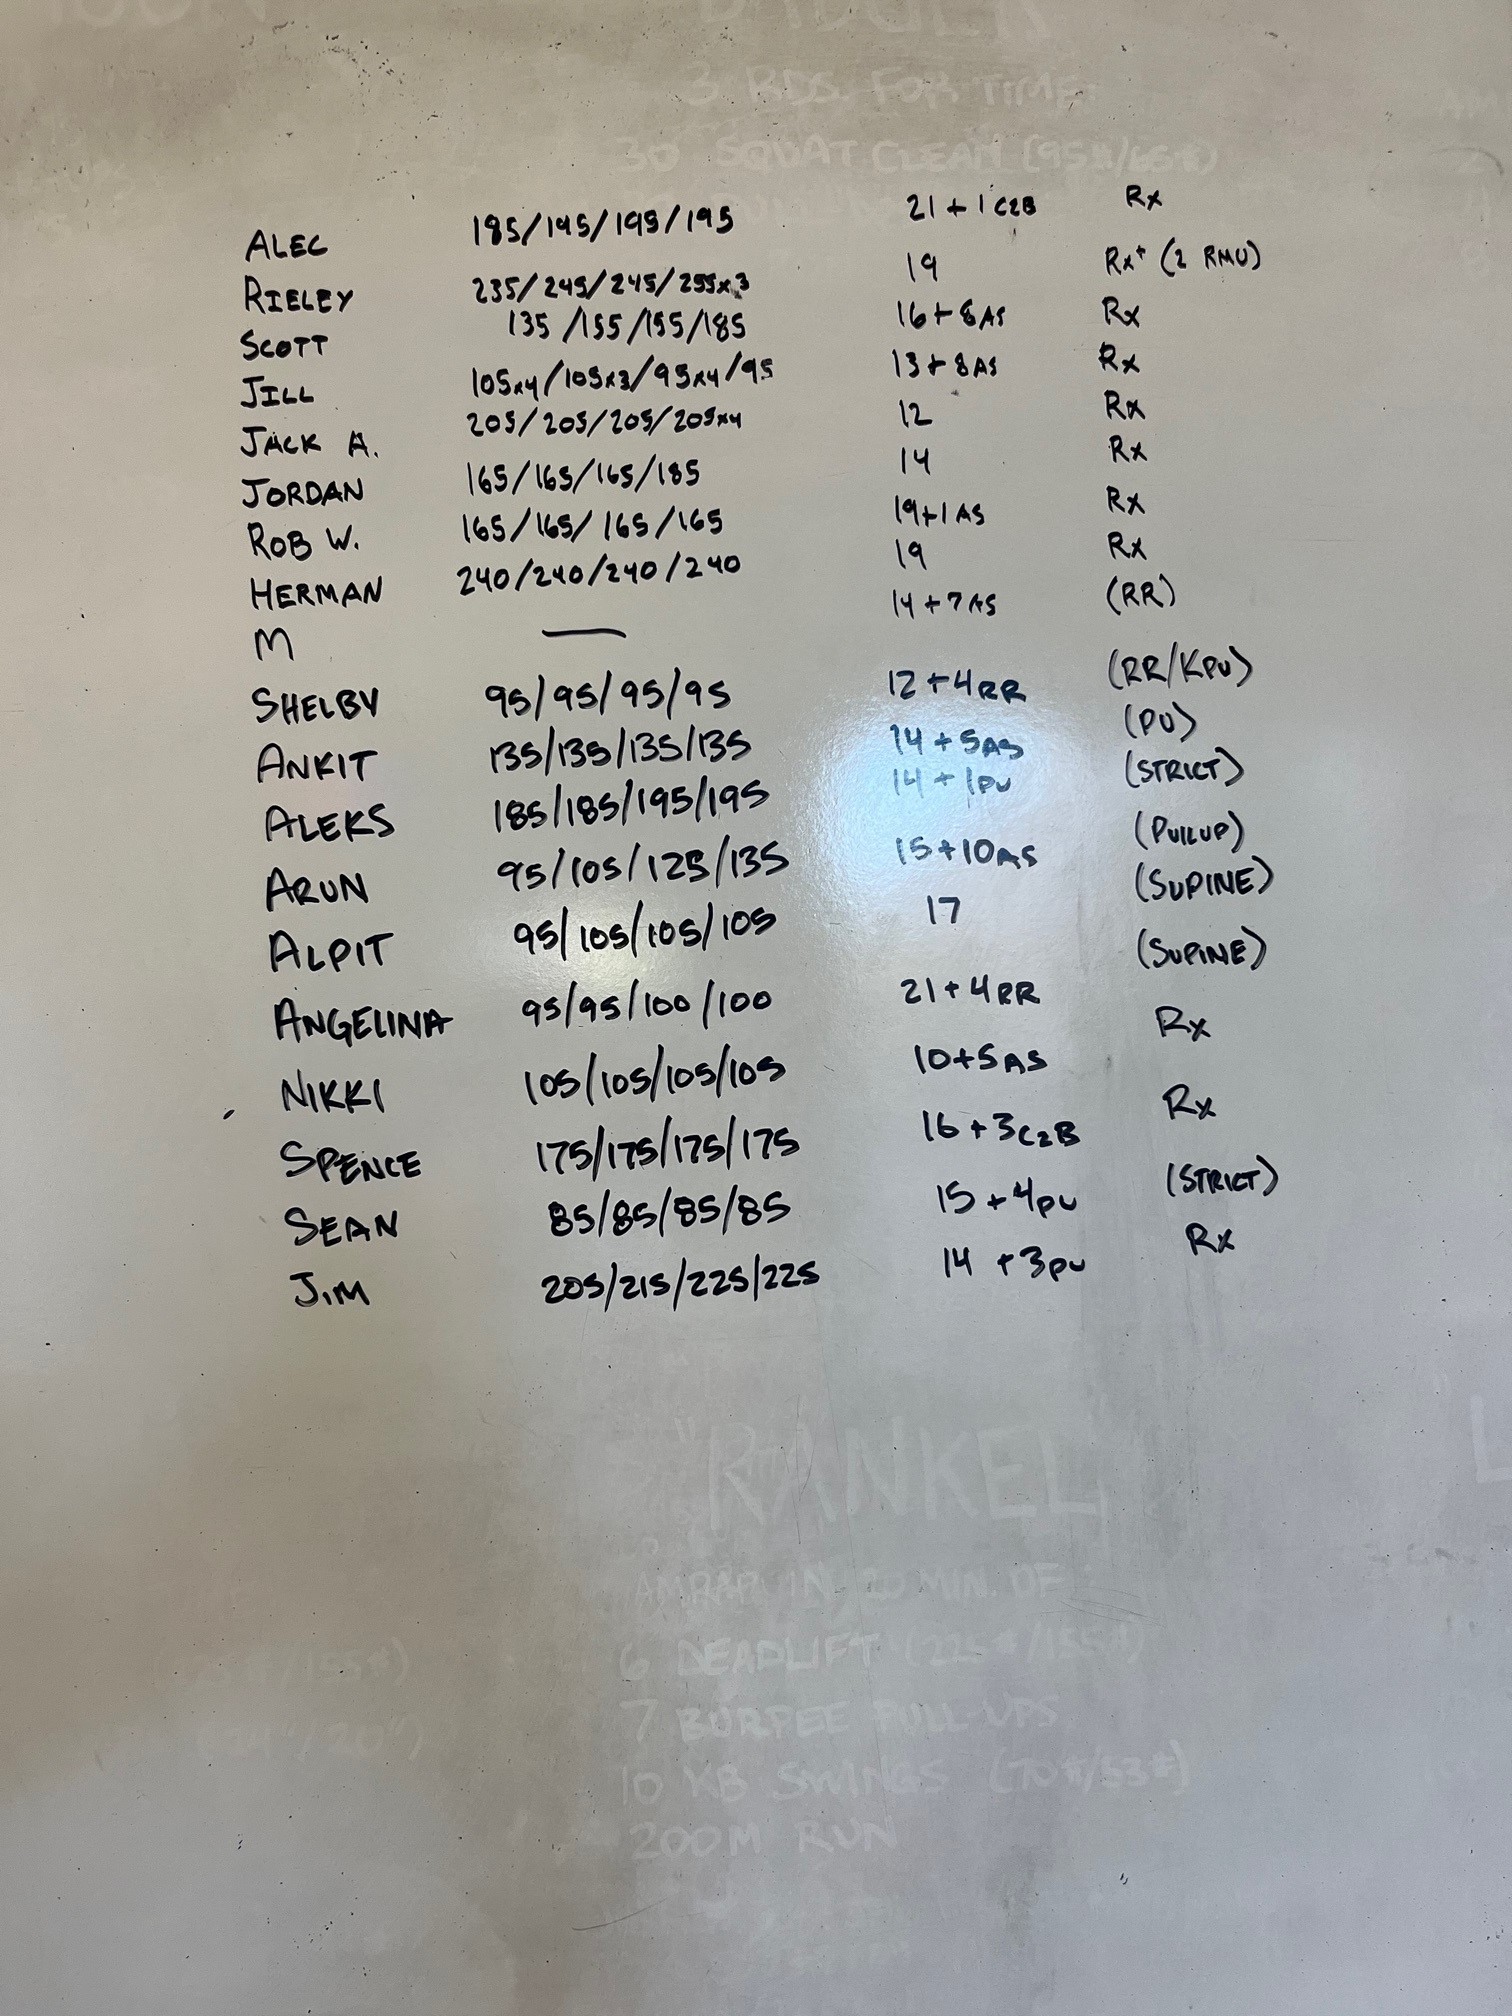 3 RDS. FOR TIME:
30 SQUAT CLEAN (95#/65#)
ALEC 185/195/195/195 21 + 1 C2B Rx
RIELEY 235/245/245/255x3 19 Rx+ (2 RMU)
SCOTT 135/155/155/185 16 + 8AS Rx
JILL 105x4/105x3/95x4/95 13 + 8AS Rx
JACK A. 205/205/205/205x4 12 Rx
JORDAN 165/165/165/185 14 Rx
ROB W. 165/165/165/165 19+1 AS Rx
HERMAN 240/240/240/240 19 Rx
M — 14 + 7AS (RR)
SHELBY 95/95/95/95 12 + 4RR (RR/KPU)
ANKIT 135/135/135/135 14 + 5AS (PU)
ALEKS 185/185/195/195 14 + 1PU (STRICT)
ARUN 95/105/125/135 15+10AS (PULLUP)
ALPIT 95/105/105/105 17 (SUPINE)
ANGELINA 95/95/100/100 21+4RR (SUPINE)
NIKKI 105/105/105/105 10+5AS Rx
SPENCE 175/175/175/175 16 + 3C2B Rx
SEAN 85/85/85/85 15 + 4PU (STRICT)
JIM 205/215/225/225 14 + 3PU Rx
"RANKEL"
AMRAP IN 20 MIN. OF
6 DEADLIFT (225#/155#)
7 BURPEE PULL-UPS
10 KB SWINGS (70#/53#)
200M RUN